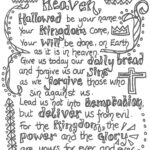 Heaven
Hallowed be your name
Your Kingdom come,
Your will be done, on Earth
as it is in heaven
Give us today our daily bread
and forgive us our Sins
as we forgive those who
sin against us.
Lead us not into Temptation
but deliver us from evil.
for the Kingdom, the
power and the Glory
are yours for ever and